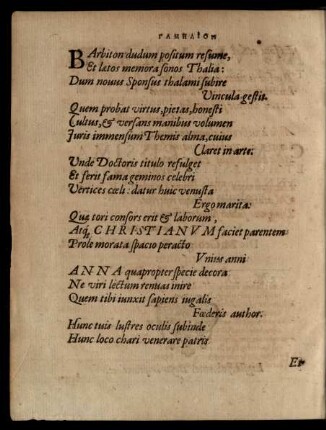 ΓΑΜΗΛΙΟΝ
BArbiton dudum positum resume,
Et lætos memora sonos Thalia:
Dum nouus Sponsus thalami subire
Vincula gestit.
Quem probat virtus, pietas, honesti
Cultus, & versans manibus volumen
Juris immensum Themis alma, cuius
Claret in arte.
Unde Doctoris titulo refulget
Et ferit fama geminos celebri
Vertices cœli: datur huic venusta
Ergo marita:
Quæ tori consors erit & laborum,
Atq; CHRISTIANVM faciet parentem
Prole morata spacio peracto
Vnius anni
ANNA quapropter specie decora
Ne viri lectum renuas inire
Quem tibi iunxit sapiens iugalis
Fœderis author.
Hunc tuis lustres oculis subinde
Hunc loco chari venerare patris
Et